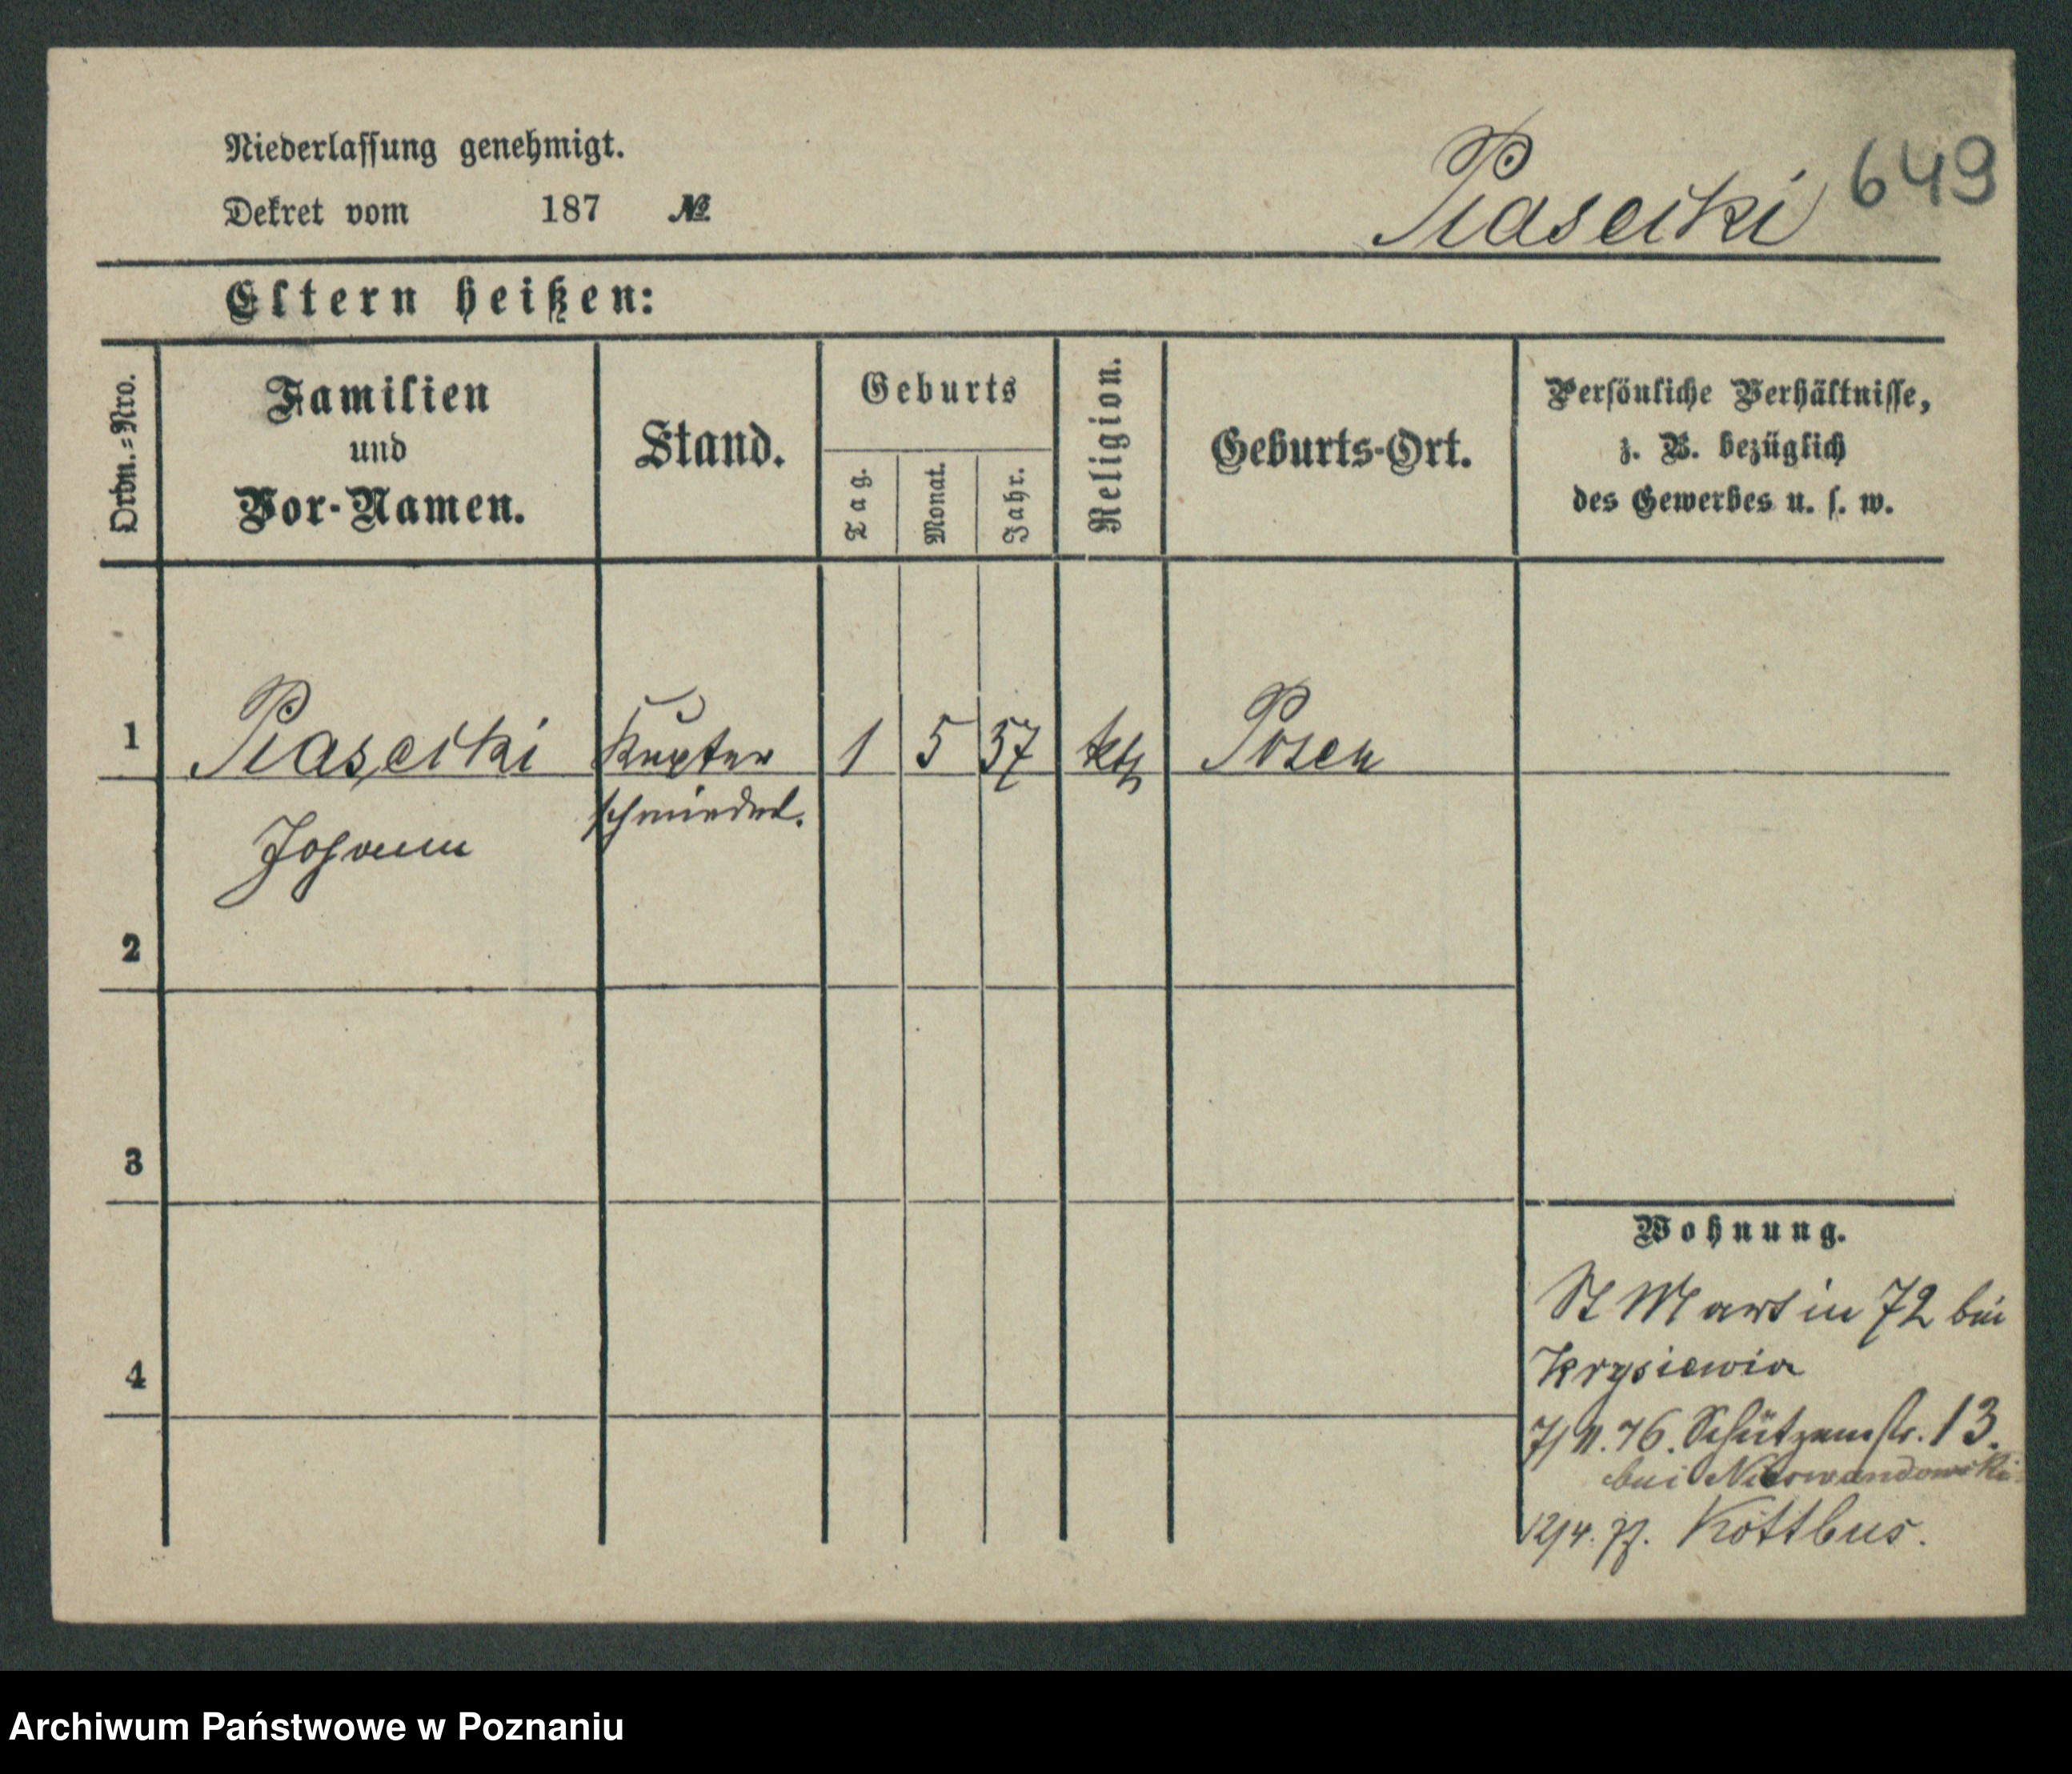 Niederlassung genehmigt.
Dekret vom 187 №
Piasecki 649
Eltern heißen:
Ordn.=Nro.
Familien
und
Vor-Namen.
Stand.
Geburts
Tag.
Monat.
Jahr.
Religion.
Geburts-Ort.
Persönliche Verhältnisse,
z. B. bezüglich
des Gewerbes u. s. w.
1 Piasecki Kupfer 1 5 57 kth Posen
schmiedel.
Johann
2
3
4
Wohnung.
St Martin 72 bei
Krysiewicz
7/11.76. Schützenstr. 13.
bei
12/4. 77. Kottbus.
Archiwum Państwowe w Poznaniu